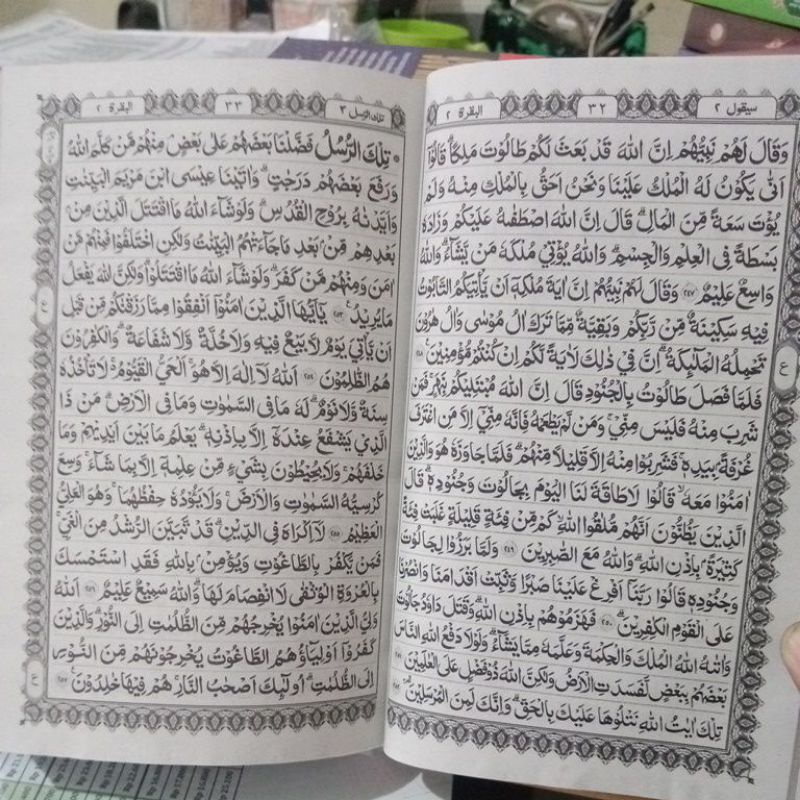 سيقول ٢
٣٢
البقرة ٢
وَقَالَ لَهُمْ نَبِيُّهُمْ اِنَّ اللّٰهَ قَدْ بَعَثَ لَكُمْ طَالُوْتَ مَلِكًاۗ قَالُوْٓا
اَنّٰى يَكُوْنُ لَهُ الْمُلْكُ عَلَيْنَا وَنَحْنُ اَحَقُّ بِالْمُلْكِ مِنْهُ وَلَمْ
يُؤْتَ سَعَةً مِّنَ الْمَالِۗ قَالَ اِنَّ اللّٰهَ اصْطَفٰىهُ عَلَيْكُمْ وَزَادَهٗ
بَسْطَةً فِى الْعِلْمِ وَالْجِسْمِۗ وَاللّٰهُ يُؤْتِيْ مُلْكَهٗ مَنْ يَّشَاۤءُۗ وَاللّٰهُ
وَاسِعٌ عَلِيْمٌ ٢٤٧ وَقَالَ لَهُمْ نَبِيُّهُمْ اِنَّ اٰيَةَ مُلْكِهٖٓ اَنْ يَّأْتِيَكُمُ التَّابُوْتُ
فِيْهِ سَكِيْنَةٌ مِّنْ رَّبِّكُمْ وَبَقِيَّةٌ مِّمَّا تَرَكَ اٰلُ مُوْسٰى وَاٰلُ هٰرُوْنَ
تَحْمِلُهُ الْمَلٰۤىِٕكَةُۗ اِنَّ فِيْ ذٰلِكَ لَاٰيَةً لَّكُمْ اِنْ كُنْتُمْ مُّؤْمِنِيْنَ ٢٤٨
فَلَمَّا فَصَلَ طَالُوْتُ بِالْجُنُوْدِ قَالَ اِنَّ اللّٰهَ مُبْتَلِيْكُمْ بِنَهَرٍۚ فَمَنْ
شَرِبَ مِنْهُ فَلَيْسَ مِنِّيْۚ وَمَنْ لَّمْ يَطْعَمْهُ فَاِنَّهٗ مِنِّيْٓ اِلَّا مَنِ اغْتَرَفَ
غُرْفَةً بِيَدِهٖۚ فَشَرِبُوْا مِنْهُ اِلَّا قَلِيْلًا مِّنْهُمْۗ فَلَمَّا جَاوَزَهٗ هُوَ وَالَّذِيْنَ
اٰمَنُوْا مَعَهٗۙ قَالُوْا لَا طَاقَةَ لَنَا الْيَوْمَ بِجَالُوْتَ وَجُنُوْدِهٖۗ قَالَ
الَّذِيْنَ يَظُنُّوْنَ اَنَّهُمْ مُّلٰقُوا اللّٰهِۙ كَمْ مِّنْ فِئَةٍ قَلِيْلَةٍ غَلَبَتْ فِئَةً
كَثِيْرَةً بِاِذْنِ اللّٰهِۗ وَاللّٰهُ مَعَ الصّٰبِرِيْنَ ٢٤٩ وَلَمَّا بَرَزُوْا لِجَالُوْتَ
وَجُنُوْدِهٖ قَالُوْا رَبَّنَآ اَفْرِغْ عَلَيْنَا صَبْرًا وَّثَبِّتْ اَقْدَامَنَا وَانْصُرْنَا
عَلَى الْقَوْمِ الْكٰفِرِيْنَۗ ٢٥٠ فَهَزَمُوْهُمْ بِاِذْنِ اللّٰهِۗ وَقَتَلَ دَاوٗدُ جَالُوْتَ
وَاٰتٰىهُ اللّٰهُ الْمُلْكَ وَالْحِكْمَةَ وَعَلَّمَهٗ مِمَّا يَشَاۤءُۗ وَلَوْلَا دَفْعُ اللّٰهِ النَّاسَ
بَعْضَهُمْ بِبَعْضٍ لَّفَسَدَتِ الْاَرْضُ وَلٰكِنَّ اللّٰهَ ذُوْ فَضْلٍ عَلَى الْعٰلَمِيْنَ ٢٥١
تِلْكَ اٰيٰتُ اللّٰهِ نَتْلُوْهَا عَلَيْكَ بِالْحَقِّۗ وَاِنَّكَ لَمِنَ الْمُرْسَلِيْنَ ٢٥٢
ع
تلك الرسل ٣
٣٣
البقرة ٢
تِلْكَ الرُّسُلُ فَضَّلْنَا بَعْضَهُمْ عَلٰى بَعْضٍۘ مِنْهُمْ مَّنْ كَلَّمَ اللّٰهُ
وَرَفَعَ بَعْضَهُمْ دَرَجٰتٍۗ وَاٰتَيْنَا عِيْسَى ابْنَ مَرْيَمَ الْبَيِّنٰتِ
وَاَيَّدْنٰهُ بِرُوْحِ الْقُدُسِۗ وَلَوْ شَاۤءَ اللّٰهُ مَا اقْتَتَلَ الَّذِيْنَ مِنْۢ
بَعْدِهِمْ مِّنْۢ بَعْدِ مَا جَاۤءَتْهُمُ الْبَيِّنٰتُ وَلٰكِنِ اخْتَلَفُوْا فَمِنْهُمْ مَّنْ
اٰمَنَ وَمِنْهُمْ مَّنْ كَفَرَۗ وَلَوْ شَاۤءَ اللّٰهُ مَا اقْتَتَلُوْاۗ وَلٰكِنَّ اللّٰهَ يَفْعَلُ
مَا يُرِيْدُ ٢٥٣ يٰٓاَيُّهَا الَّذِيْنَ اٰمَنُوْٓا اَنْفِقُوْا مِمَّا رَزَقْنٰكُمْ مِّنْ قَبْلِ
اَنْ يَّأْتِيَ يَوْمٌ لَّا بَيْعٌ فِيْهِ وَلَا خُلَّةٌ وَّلَا شَفَاعَةٌۗ وَالْكٰفِرُوْنَ
هُمُ الظّٰلِمُوْنَ ٢٥٤ اَللّٰهُ لَآ اِلٰهَ اِلَّا هُوَۚ اَلْحَيُّ الْقَيُّوْمُ ەۚ لَا تَأْخُذُهٗ
سِنَةٌ وَّلَا نَوْمٌۗ لَهٗ مَا فِى السَّمٰوٰتِ وَمَا فِى الْاَرْضِۗ مَنْ ذَا
الَّذِيْ يَشْفَعُ عِنْدَهٗٓ اِلَّا بِاِذْنِهٖۗ يَعْلَمُ مَا بَيْنَ اَيْدِيْهِمْ وَمَا
خَلْفَهُمْۚ وَلَا يُحِيْطُوْنَ بِشَيْءٍ مِّنْ عِلْمِهٖٓ اِلَّا بِمَا شَاۤءَۚ وَسِعَ
كُرْسِيُّهُ السَّمٰوٰتِ وَالْاَرْضَۚ وَلَا يَـُٔوْدُهٗ حِفْظُهُمَاۚ وَهُوَ الْعَلِيُّ
الْعَظِيْمُ ٢٥٥ لَآ اِكْرَاهَ فِى الدِّيْنِۗ قَدْ تَّبَيَّنَ الرُّشْدُ مِنَ الْغَيِّۚ
فَمَنْ يَّكْفُرْ بِالطَّاغُوْتِ وَيُؤْمِنْۢ بِاللّٰهِ فَقَدِ اسْتَمْسَكَ
بِالْعُرْوَةِ الْوُثْقٰى لَا انْفِصَامَ لَهَاۗ وَاللّٰهُ سَمِيْعٌ عَلِيْمٌ ٢٥٦ اَللّٰهُ
وَلِيُّ الَّذِيْنَ اٰمَنُوْا يُخْرِجُهُمْ مِّنَ الظُّلُمٰتِ اِلَى النُّوْرِۗ وَالَّذِيْنَ
كَفَرُوْٓا اَوْلِيَاۤؤُهُمُ الطَّاغُوْتُ يُخْرِجُوْنَهُمْ مِّنَ النُّوْرِ
اِلَى الظُّلُمٰتِۗ اُولٰۤىِٕكَ اَصْحٰبُ النَّارِۚ هُمْ فِيْهَا خٰلِدُوْنَ ٢٥٧
ع
ع